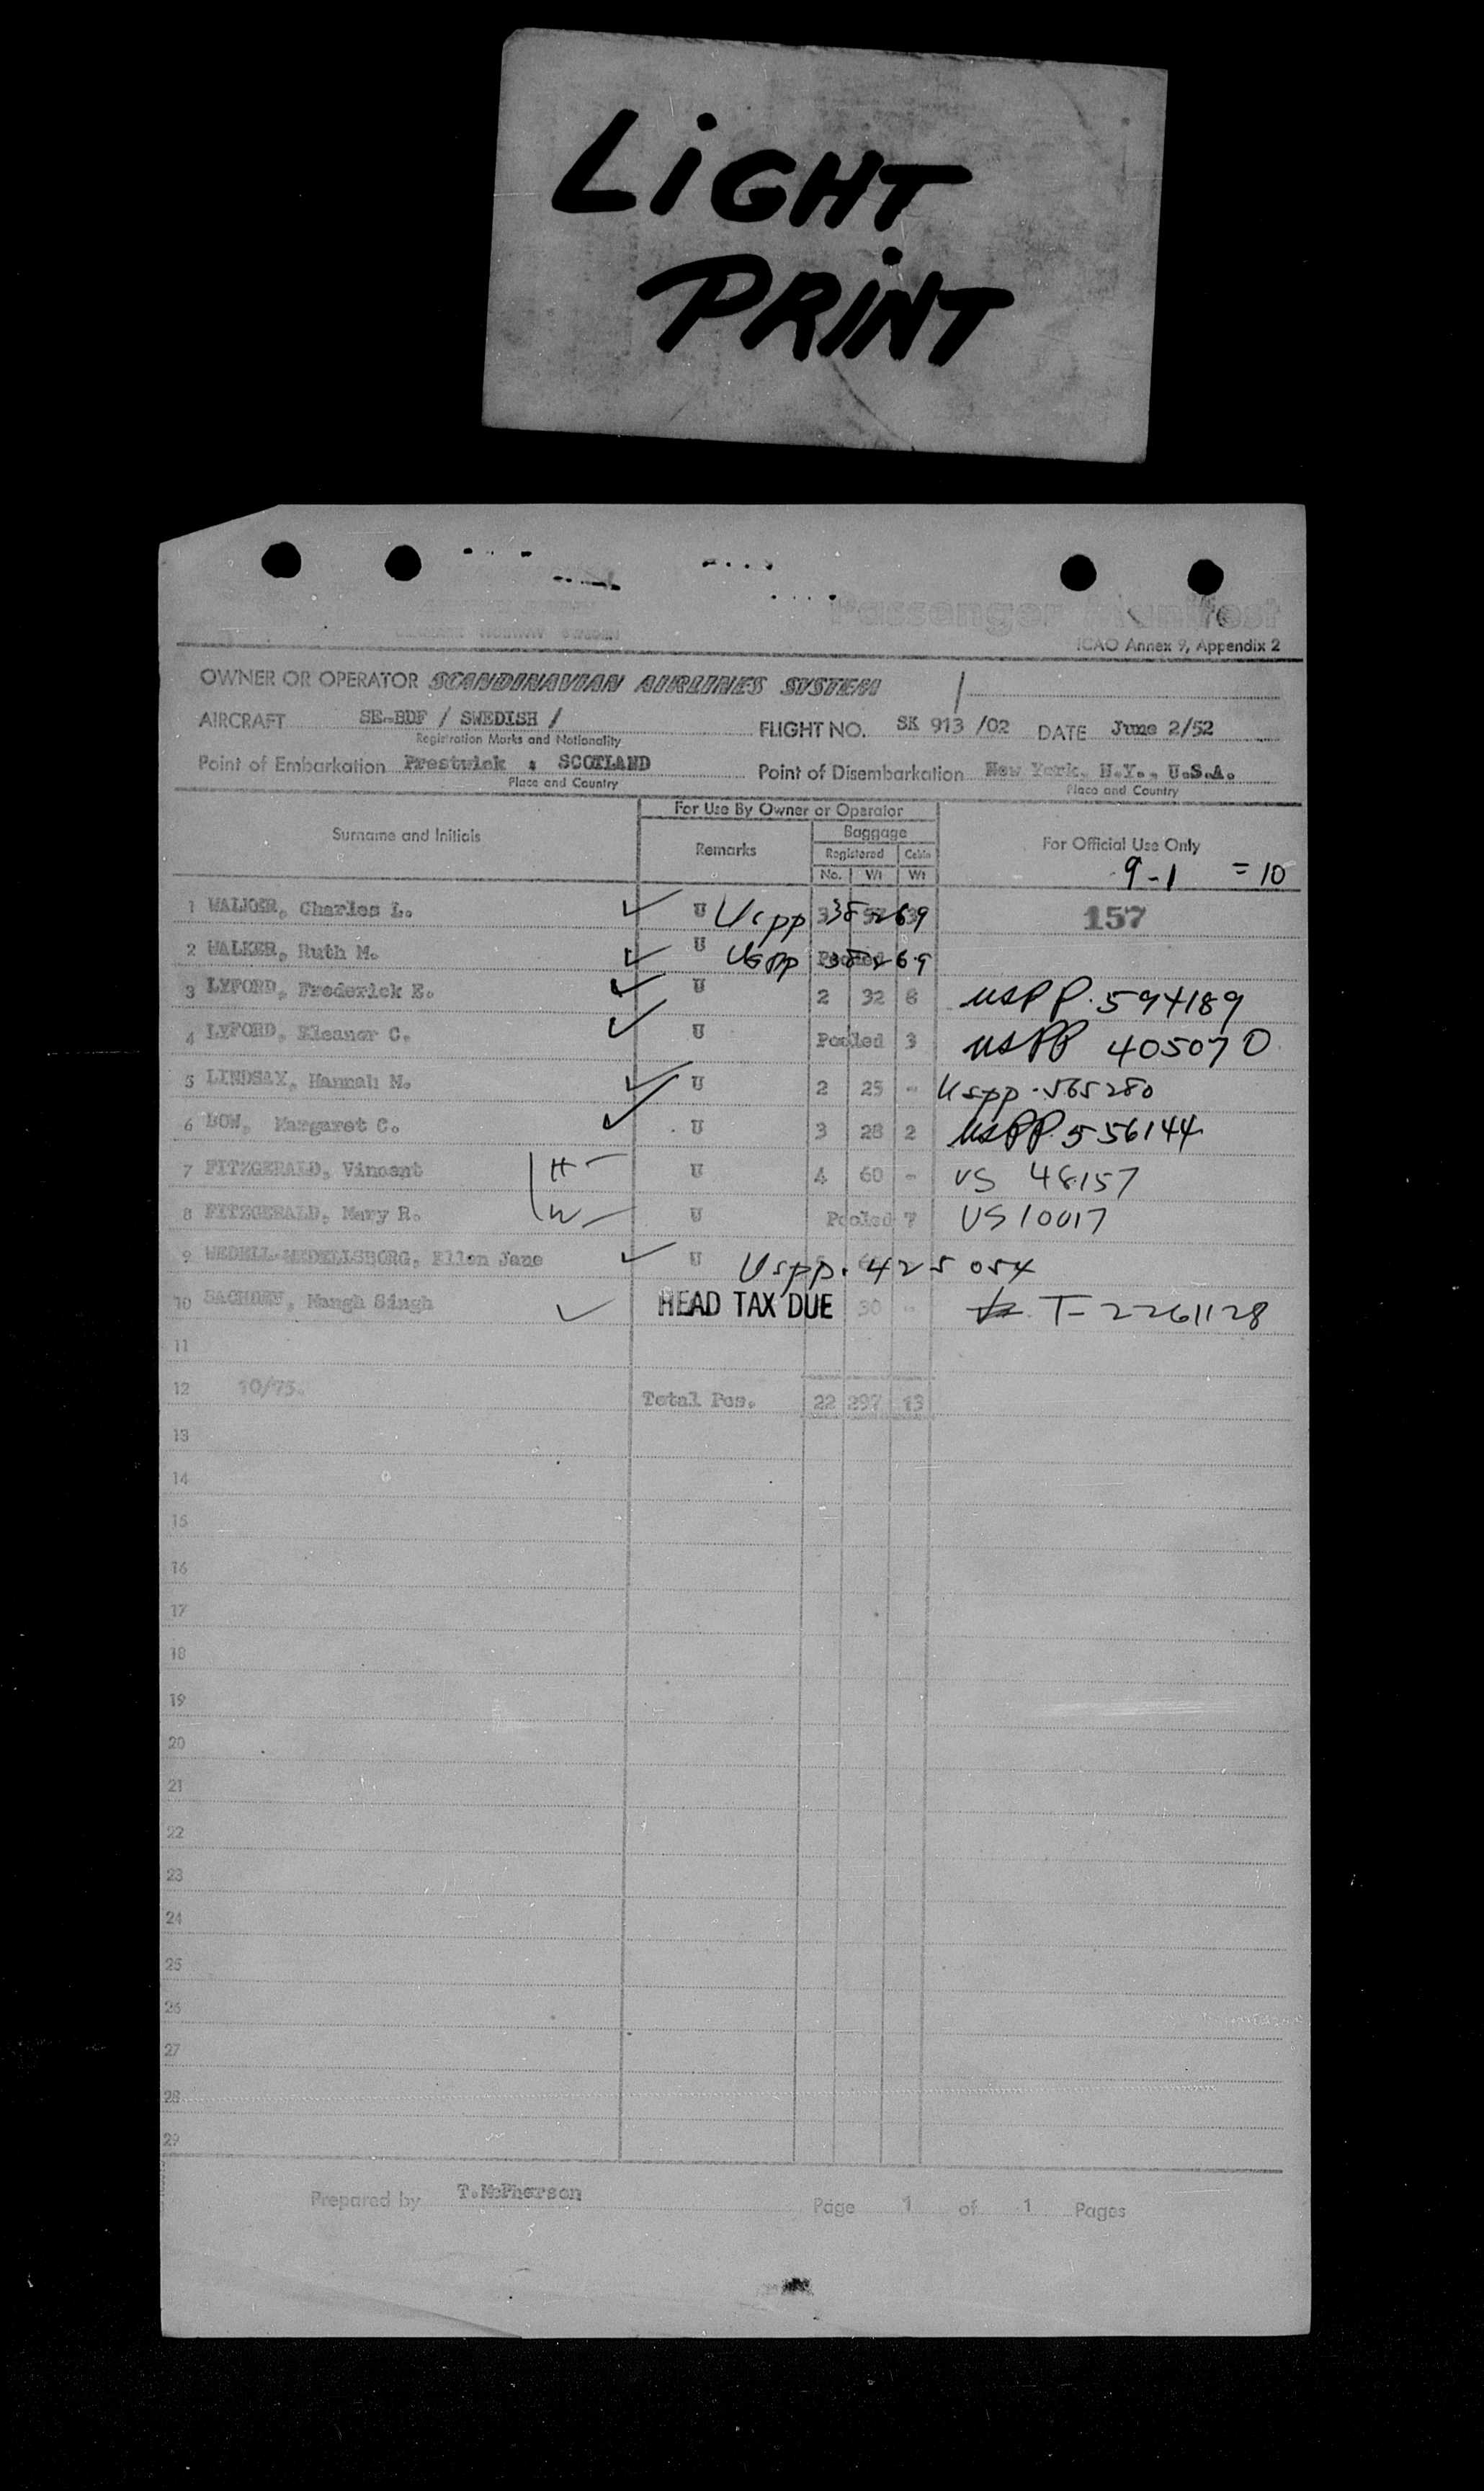 LiGHT
PRiNT
Passenger Manifest
ICAO Annex 9, Appendix 2
OWNER OR OPERATOR SCANDINAVIAN AIRLINES SYSTEM
AIRCRAFT SE-BDF / SWEDISH / FLIGHT NO. SK 913 /02 DATE June 2/52
Registration Marks and Nationality
Point of Embarkation Prestwick , SCOTLAND Point of Disembarkation New York, N.Y., U.S.A.
Place and Country Place and Country
For Use By Owner or Operator
Surname and Initials Remarks Baggage For Official Use Only
Registered Cabin
No. Wt Wt 9-1 = 10
1 WALKER, Charles L. U Uspp 38269 157
2 WALKER, Ruth M. U Uspp 38269 Pooled
3 LYFORD, Frederick E. U 2 32 6 USPP. 594189
4 LYFORD, Eleanor C. U Pooled 3 USPP 405070
5 LINDSAY, Hannah M. U 2 25 - Uspp. 565280
6 Margaret C. U 3 28 2 USPP. 556144
7 FITZGERALD, Vincent H U 4 60 - US 48157
8 FITZGERALD, Mary R. W U Pooled 7 US 10017
9 WEDELL-WEDELLSBORG, Ellen Jane U Uspp. 425054
10 Mangh Singh HEAD TAX DUE 30 - T-2261128
11
12 10/75. Total Pcs. 22 297 13
13
14
15
16
17
18
19
20
21
22
23
24
25
26
27
28
29
Prepared by T.McPherson Page 1 of 1 Pages